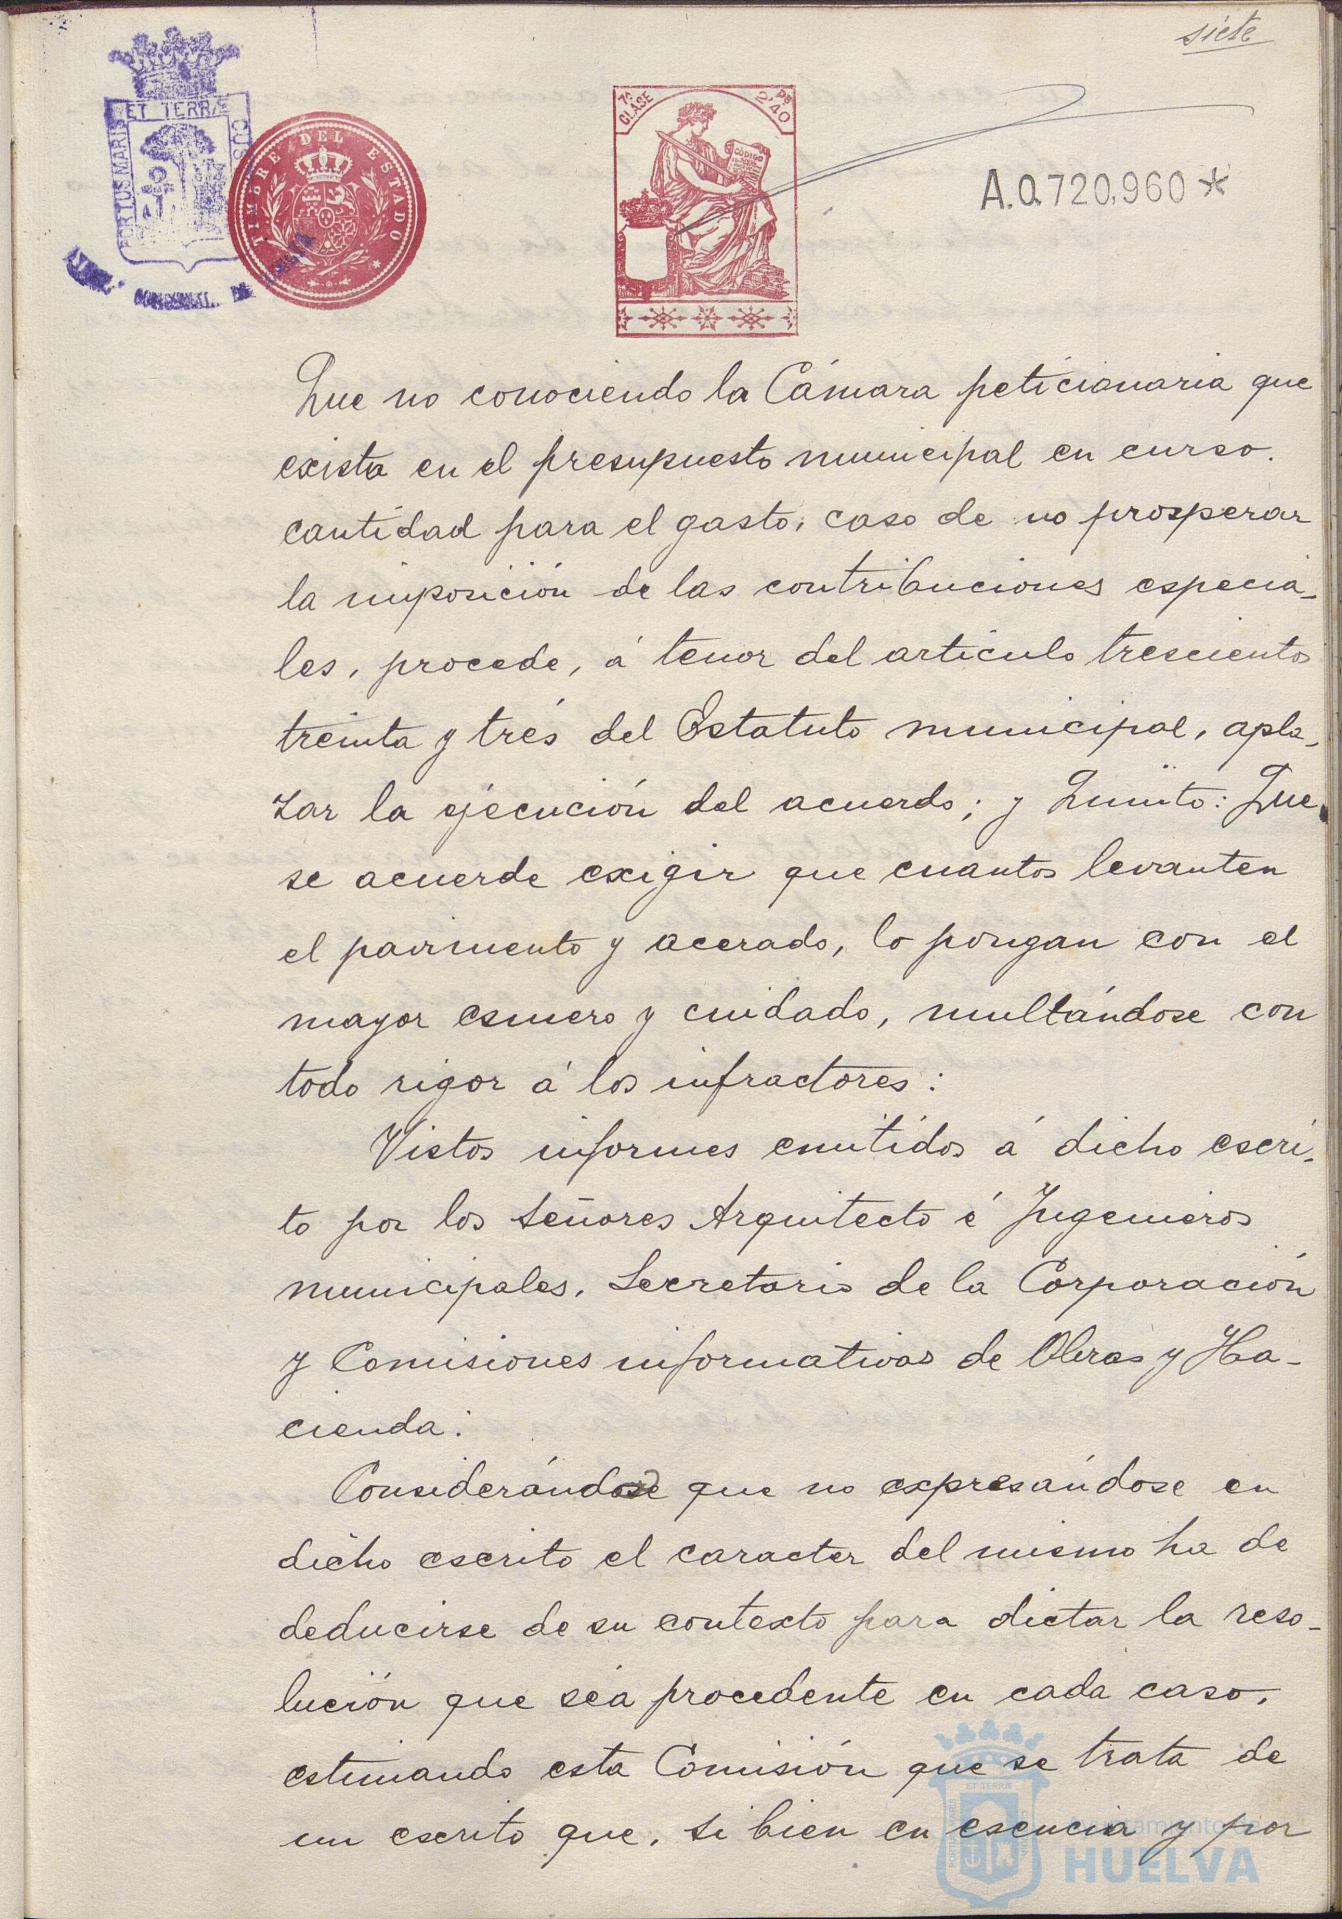 siete
ET TERRÆ
PORTUS MARIS
CUSTO
TIMBRE DEL ESTADO
7ª CLASE
Ps 2'40
CÓDIGO
A.0.720,960*
Que no conociendo la Cámara peticionaria que
exista en el presupuesto municipal en curso.
cantidad para el gasto, caso de no prosperar
la imposición de las contribuciones especia-
les, procede, á tenor del artículo trescientos
treinta y trés del Estatuto municipal, apla-
zar la ejecución del acuerdo; y Quinto: Que
se acuerde exigir que cuantos levanten
el pavimento y acerado, lo pongan con el
mayor esmero y cuidado, multándose con
todo rigor á los infractores:
Vistos informes emitidos á dicho escri-
to por los Señores Arquitecto é Ingenieros
municipales, Secretario de la Corporación
y Comisiones informativas de Obras y Ha-
cienda:
Considerándose que no expresándose en
dicho escrito el caracter del mismo ha de
deducirse de su contexto para dictar la reso-
lución que séa procedente en cada caso,
estimando esta Comisión que se trata de
un escrito que, si bien en esencia y por
Ayuntamiento de
HUELVA